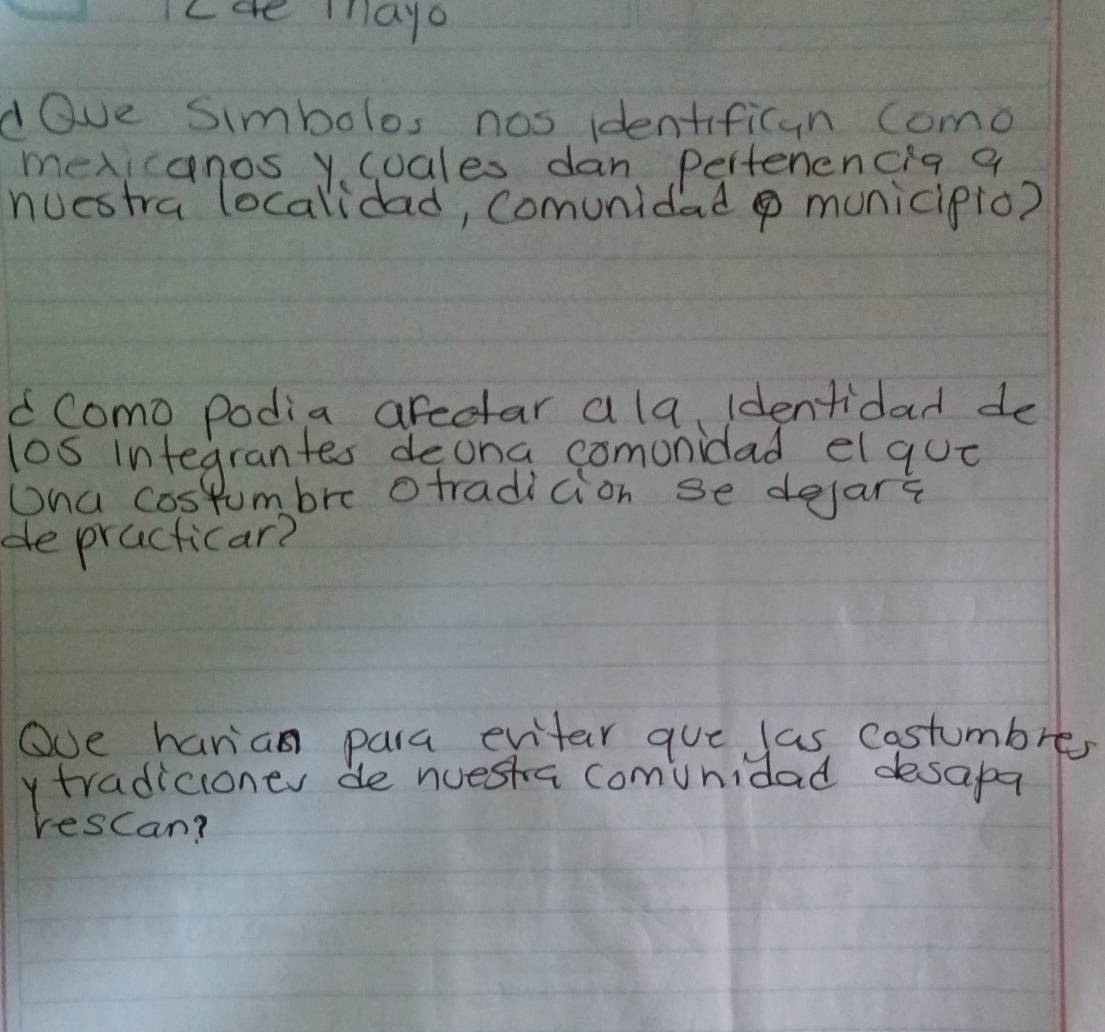 12 de mayo
¿Que simbolos nos identifican como
mexicanos y cuales dan pertenencia a
nuestra localidad, comunidad o municipio?
¿Como podia afectar ala identidad de
los integrantes deuna comunidad elque
una costumbre o tradicion se dejara
de practicar?
Que harian para evitar que las costumbres
y tradiciones de nuestra comunidad desapa
rescan?